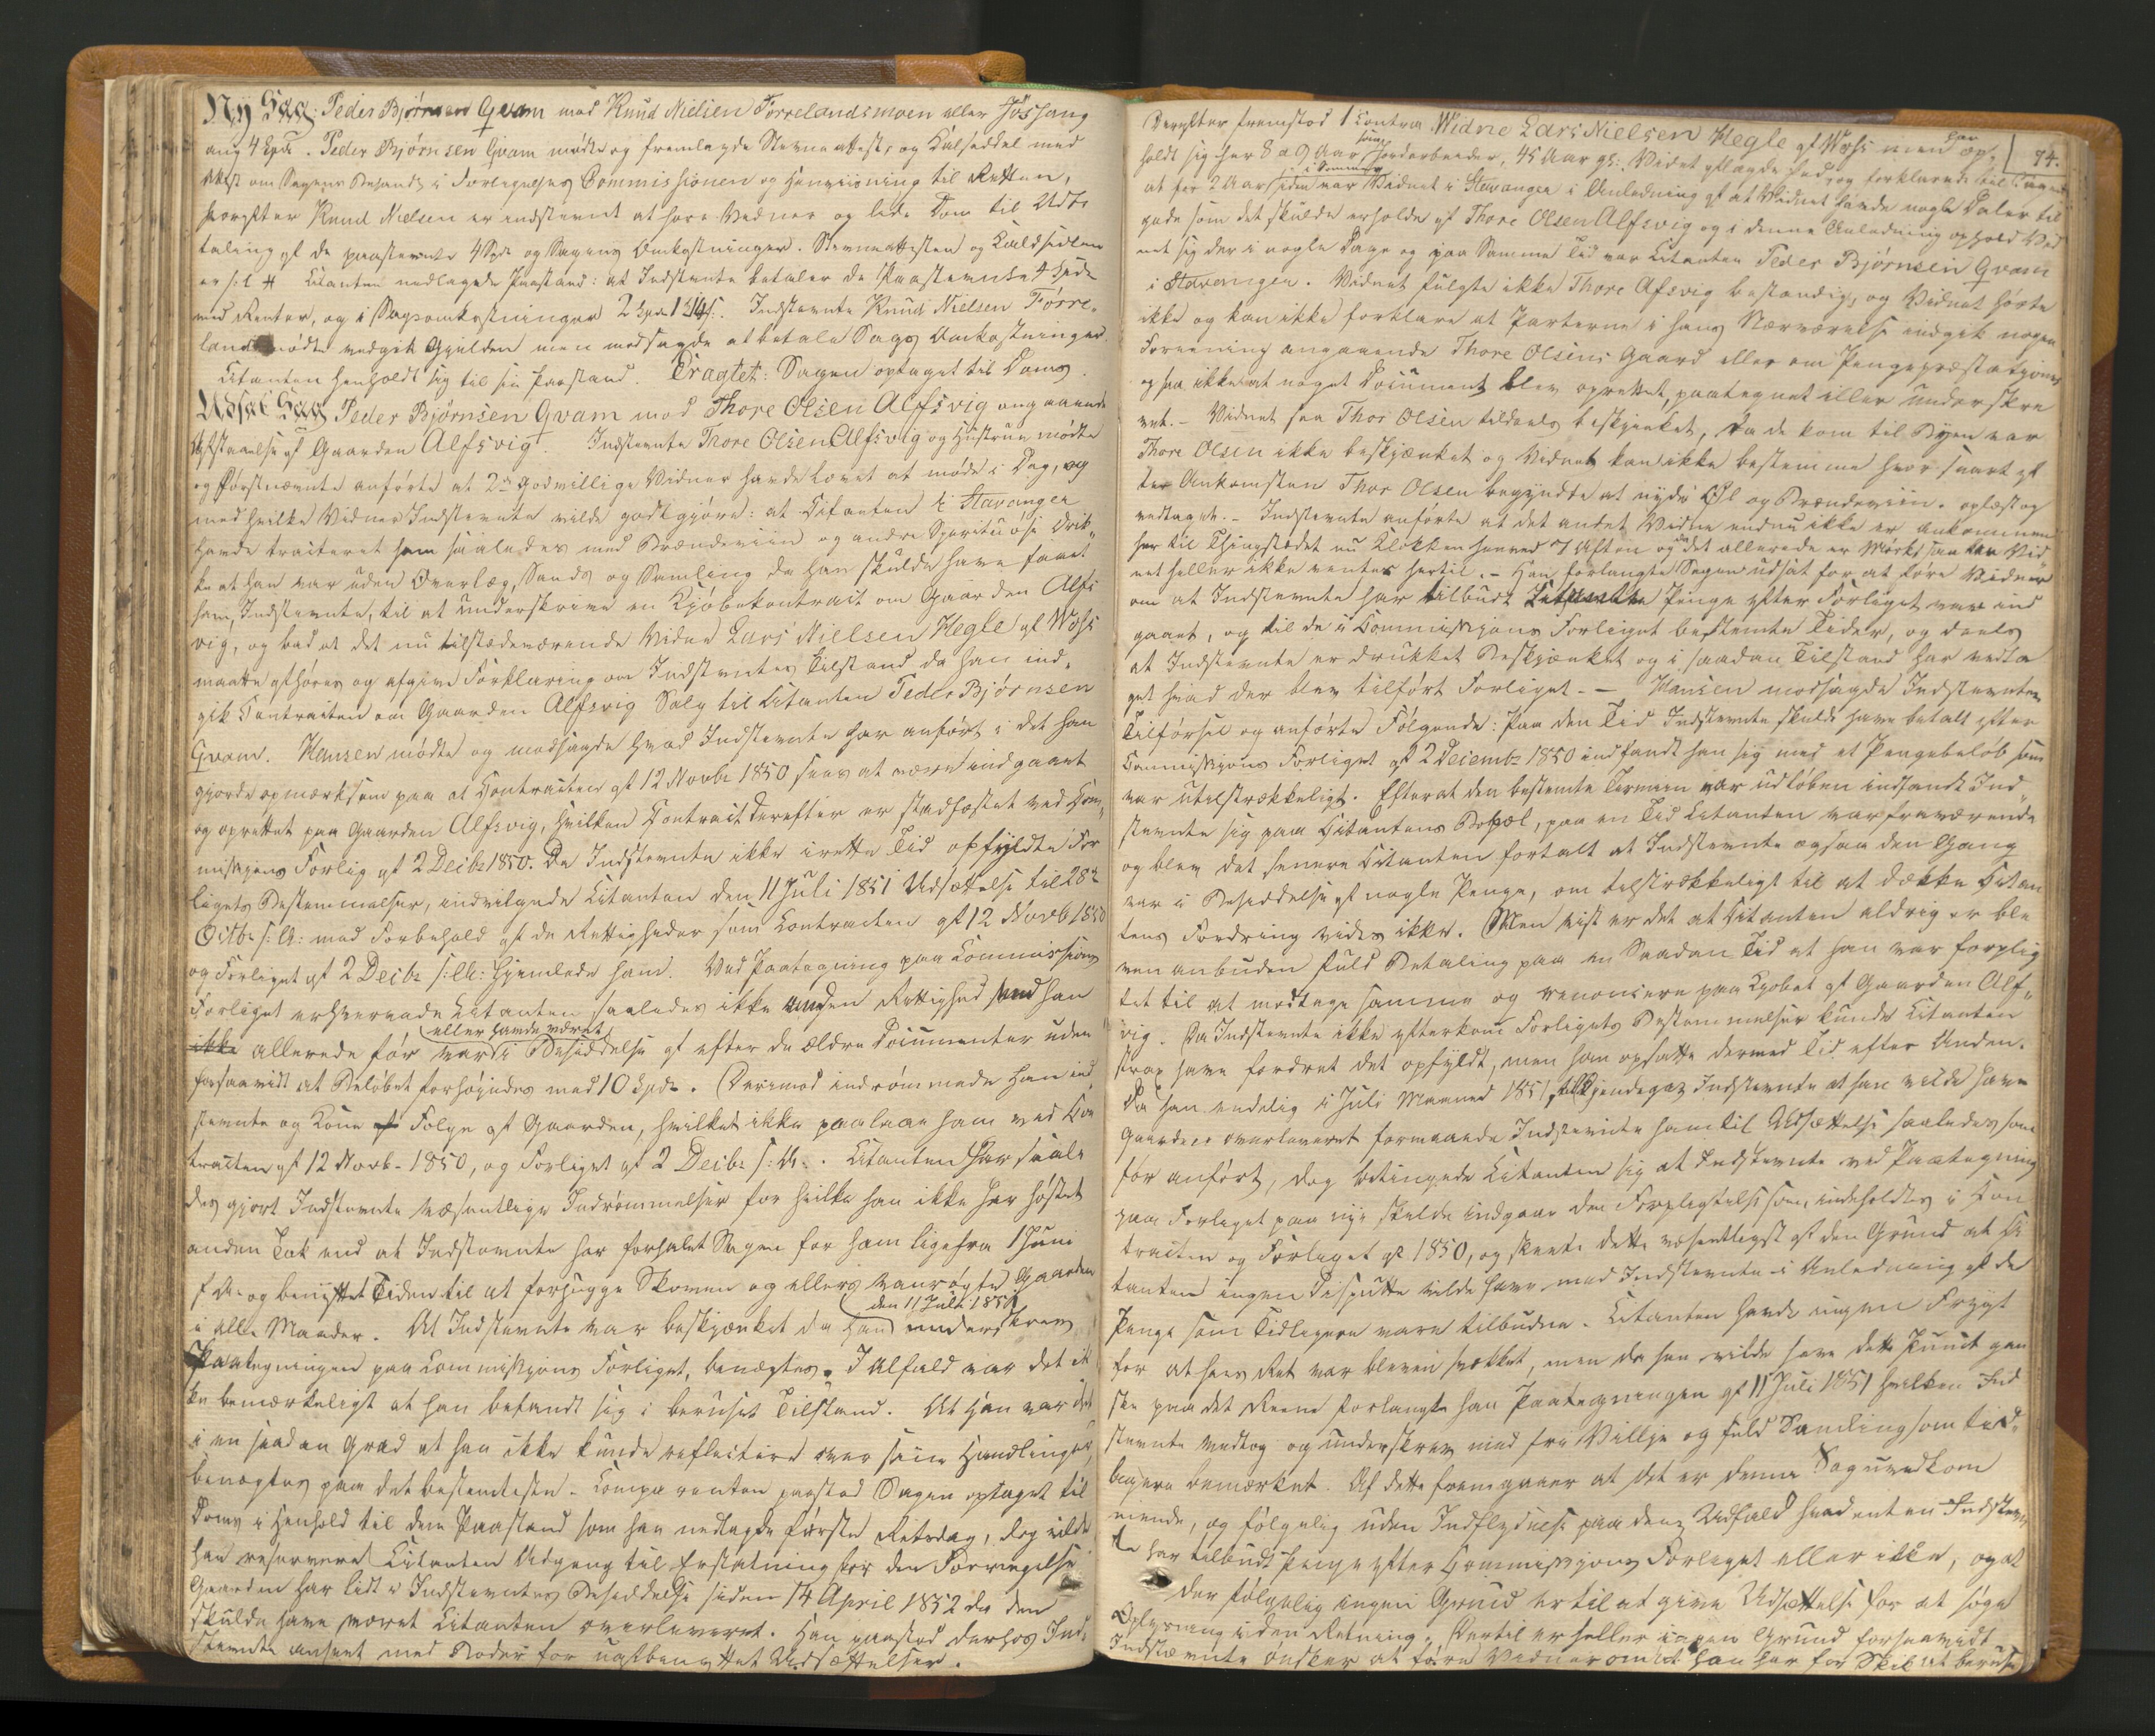 Ny Sag: Peder Bjørnsen Qvam mod Knud Nielsen Førrelandsmoen eller Høshaug
ang 4 Spd. Peder Bjørnsen Qvam mødte og fremlagde Stevneattest, og Kalseddel med
Attest om Sagens Behandl i Forligelses Commissionen og Henviisning til Retten,
hvorefter Knud Nielsen er indstevnt at høre Vidner og lide Dom til Udbe
taling af de paastevnte 4 Spd og Sagens Omkostninger. Stevneattesten og Kaldsedlen
Citanten nedlagde Paastand: at Indstevnte betaler de paastevnte 4 Spd
med Renter, og i Sagsomkostninger 2 Spd 1 ort. Indstevnte Knud Nielsen Førre-
land mødte vedgik Gjælden men modsagde at betale Sags Omkostninger.
Citanten henholdt sig til sin Paastand. Eragtet: Sagen optaget til Doms.
Udsat Sag Peder Bjørnsen Qvam mod Thore Olsen Alfsvig angaaende
Afstaaelse af Gaarden Alfsvig. Indstevnte Thore Olsen Alfsvig og Hustrue mødte
og Førstnævnte anførte at 2de godvillige Vidner havde lovet at møde i Dag, og
med hvilke Vidner Indstevnte vilde godtgjøre: at Citanten i Stavanger
havde tracteret ham saaledes med Brændeviin og andre Spirituøse Drik-
ke at han var uden Overlæg, Sands og Samling da han skulde have faaet
ham, Indstevnte, til at underskrive en Kjøbekontrait om Gaarden Alfs
vig, og bad at det nu tilstedeværende Vidne Lars Nielsen Hegle af Woss
maatte afhøres og afgive Forklaring om Indstevntes Tilstand da han ind-
gik Contraiten om Gaarden Alfsvig Salg til Citanten Peder Bjørnsen
Qvam. Hansen mødte og modsagde hvad Indstevnte har anført i det han
gjorde opmærksom paa at Contraiten af 12 Novbr 1850 sees at være indgaaet
og oprettet paa Gaarden Alfsvig, hvilken Contrait derefter er stadfæstet ved Kom-
missions Forlig af 2 Decbr 1850. Da Indstevnte ikke i rette Tid opfyldte For
ligets Bestemmelser, indvilgede Citanten den 11 Juli 1851 Udsættelse til 28de
Octbr s: A: med Forbehold af de Rettigheder som Contracten af 12 Novb 1850
og Forliget af 2 Decbr s: A: hjemlede ham. Ved Paategning paa Commissions
Forliget erhvervede Citanten saaledes ikke anden Rettighed end han
ikke allerede før var (eller havde været) i Besiddelse af efter de ældre Documenter uden
forsaavidt at Beløbet forhøiedes med 10 Spd. Derimod indrømmede han Ind
stevnte og Kone Følge af Gaarden, hvilket ikke paalaae ham ved Con
tracten af 12 Novb- 1850, og Forliget af 2 Decbr s: A:. Citanten har saale
des gjort Indstevnte væsentlige Indrømmelser for hvilke han ikke har høstet
anden Tak end at Indstevnte har forhalet Sagen for ham ligefra 1 Juni
f A. og benyttet Tiden til at forhugge Skoven og ellers vanrøgte Gaarden
i alle Maader. At Indstevnte var beskjænket da han den 11 Juli 1851 underskrev
Paategningen paa Commissjons Forliget, benægtes. I Alfald var det ik
ke bemærkeligt at han befandt sig i beruset Tilstand. At han var det
i en saadan Grad at han ikke kunde reflectere over sine Handlinger,
benægtes paa det bestemteste. Comparenten paastod Sagen optaget til
Doms i Henhold til den Paastand som han nedlagde første Retsdag, dog vilde
han reservere Citanten Adgang til Erstatning for den Forringelse
Gaarden har lidt i Indstevntes Besiddelse siden 14 April 1852 da den
skulde have været Citanten overleveret. Han paastod derhos Ind-
stevnte anseet med Bøder for uafbenyttet Udsættelser.
74.
Derefter fremstod 1 Contra Widne Lars Nielsen Hegle af Woss men har op-
holdt sig her 8 a 9 Aar som Jordarbeider, 45 Aar gl: Vidnet aflagde Eed og forklarede til
at for 2 Aar siden i Sommer var Vidnet i Stavanger i Anledning af at Vidnet havde nogle Daler til
gode som det skulde erholde af Thore Olsen Alfsvig og i denne Anledning ophold Vid
net sig der i nogle Dage og paa samme Tid var Citanten Peder Bjørnsen Qvam
i Stavanger. Vidnet fulgte ikke Thore Afsvig bestandig, og Vidnet hørte
ikke og kan ikke forklare at Parterne i hans Nærværelse indgik nogen
Forening angaaende Thore Olsens Gaard eller om Pengepræstationer
og saa ikke at noget Document blev oprettet, paategnet eller underskre
vet. - Vidnet saa Thor Olsen tildeels beskjenket, da de kom til Byen var
Thore Olsen ikke beskjænket og Vidnet kan ikke bestemme hvor snart ef
ter Ankomsten Thor Olsen begyndte at nyde Øl og Brændeviin. oplæst og
vedtaget. - Indstevnte anførte at det andet Vidne endnu ikke er ankommen
her til Thingstedet nu Klokken henved 7 Aften og da det allerede er Mørkt saa kan Vid-
net heller ikke ventes hertil. - Han forlangte Sagen udsat for at føre Vidner
om at Indstevnte har tilbudt Citanten Penge efter Forliget var ind
gaaet, og til de i Commissjons Forliget bestemte Tider, og deels
at Indstevnte er drukket beskjænket og i saadan Tilstand har vedta
get hvad der blev tilført Forliget. - Hansen modsagde Indstevntes
Tilførsel og anførte Følgende: Paa den Tid Indstevnte skulde have betalt efter
Commissjons Forliget af 2 Decembr 1850 indfandt han sig med et Pengebeløb som
var utilstrækkeligt. Efterat den bestemte Termin var udløben indfandt Ind-
stevnte sig paa Citantens Bopæl, paa en Tid Citanten var fraværende
og blev det senere Citanten fortalt at Indstevnte ogsaa den Gang
var i Besiddelse af nogle Penge, om tilstrækkeligt til at dække Citan
tens Fordring vides ikke. Men vist er det at Citanten aldrig er ble
ven anbuden fuld Betaling paa en saadan Tid at han var forplig
tet til at modtage samme og renoncere paa Kjøbet af Gaarden Alf-
vig. Da Indstevnte ikke efterkom Forligets Bestemmelser kunde Citanten
strax have fordret det opfyldt, men han opsatte dermed Tid efter Anden.
Da han endelig i Juli Maaned 1851 tilkjendegav Indstevnte at han vilde have
Gaarden overleveret formaaede Indstevnte ham til Udsættelse saaledes som
før anført, dog betingede Citanten sig at Indstevnte ved Paategning
paa Forliget paa nye skulde indgaae den Forpligtelse som indeholdtes i Con
tracten og Forliget af 1850, og skeede dette væsentligst af den Grund at Ci
tanten ingen Dispütte vilde have med Indstevnte i Anledning af de
Penge som Tidligere vare tilbudne. Citanten havde ingen Frygt
for at hans Ret var bleven svækket, men da han vilde have dette Punct gan
ske paa det Rene forlangte han Paategningen af 11 Juli 1851 hvilken Ind
stevnte vedtog og underskrev med fri Villje og fuld Samling som tid-
ligere bemærket. Af dette fremgaaer at det er denne Sag uvedkom
mende, og følgelig uden Indflydelse paa dens Udfald hvad enten Indstevn
te har tilbudt Penge efter Commissjons Forliget eller ikke, og at
der følgelig ingen Grund er til at give Udsættelse for at søge
Oplysning i den Retning. Dertil er heller ingen Grund forsaavidt
Indstævnte ønsker at føre Vidner om at han har for Skik at beruse